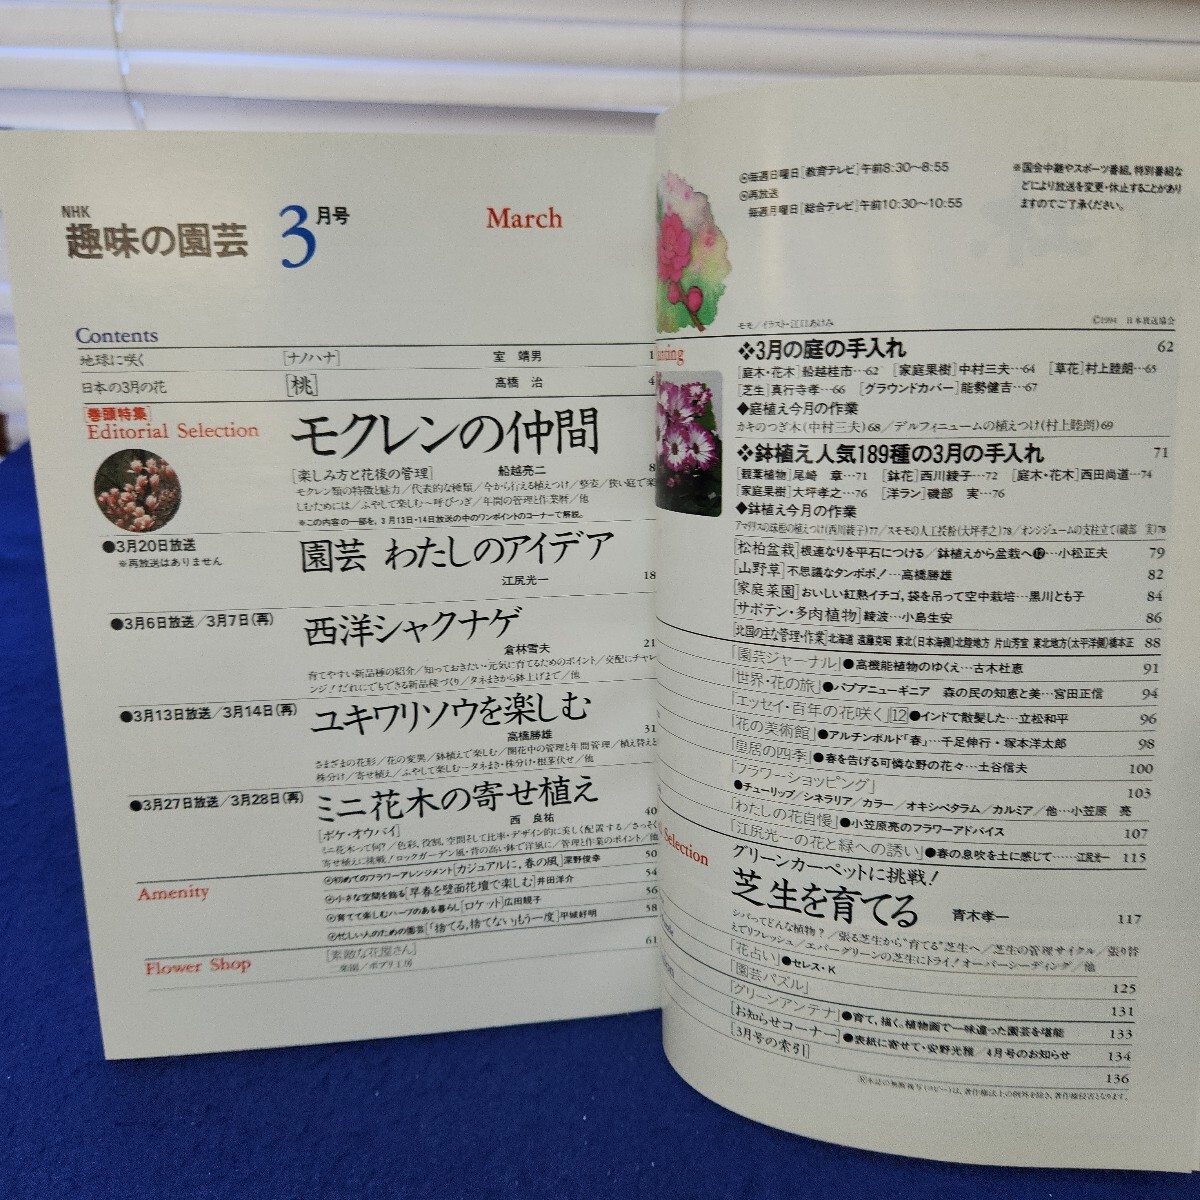 NHK
趣味の園芸 3月号 March
Contents
地球に咲く [ナノハナ] 室 靖男 1
日本の3月の花 [桃] 高橋 治 4
[巻頭特集]
Editorial Selection
モクレンの仲間
[楽しみ方と花後の管理] 船越亮二 8
モクレン類の特徴と魅力/代表的な種類/今から行える植えつけ/整姿/狭い庭で楽
しむためには/ふやして楽しむ〜呼びつぎ/年間の管理と作業暦/他
※この内容の一部を、3月13日・14日放送の中のワンポイントのコーナーで解説。
●3月20日放送
※再放送はありません
園芸 わたしのアイデア
江尻光一 18
●3月6日放送/3月7日(再)
西洋シャクナゲ
倉林雪夫 21
育てやすい新品種の紹介/知っておきたい・元気に育てるためのポイント/交配にチャレ
ンジ!だれにでもできる新品種づくり/タネまきから鉢上げまで/他
●3月13日放送/3月14日(再)
ユキワリソウを楽しむ
高橋勝雄 31
さまざまの花形/花の変異/鉢植えで楽しむ/開花中の管理と年間管理/植え替えと
株分け/寄せ植え/ふやして楽しむ―タネまき・株分け・根茎伏せ/他
●3月27日放送/3月28日(再)
ミニ花木の寄せ植え
西 良祐 40
[ボケ・オウバイ]
ミニ花木って何?/色彩、役割、空間そして比率・デザイン的に美しく配置する/さっそく
寄せ植えに挑戦/ロックガーデン風・背の高い鉢で洋風に/管理と作業のポイント/他
Amenity
初めてのフラワーアレンジメント[カジュアルに、春の風]深野俊幸 50
小さな空間を飾る[早春を壁面花壇で楽しむ]井田洋介 54
育てて楽しむハーブのある暮らし[ロケット]広田靚子 56
忙しい人のための園芸[「捨てる、捨てない」もう一度]平城好明 58
Flower Shop
[素敵な花屋さん] 61
二楽園/ポプリ工房
毎週日曜日[教育テレビ]午前8:30〜8:55
再放送
毎週月曜日[総合テレビ]午前10:30〜10:55
※国会中継やスポーツ番組、特別番組な
どにより放送を変更・休止することがあり
ますのでご了承ください。
モモ/イラスト・江口あけみ
©1994 日本放送協会
❖3月の庭の手入れ 62
[庭木・花木]船越桂市…62 [家庭果樹]中村三夫…64 [草花]村上睦朗…65
[芝生]真行寺孝…66 [グラウンドカバー]能勢健吉…67
◆庭植え今月の作業
カキのつぎ木(中村三夫)68/デルフィニュームの植えつけ(村上睦朗)69
❖鉢植え人気189種の3月の手入れ 71
[観葉植物]尾崎 章…71 [鉢花]西川綾子…72 [庭木・花木]西田尚道…74
[家庭果樹]大坪孝之…76 [洋ラン]磯部 実…76
◆鉢植え今月の作業
アマリリスの球根の植えつけ(西川綾子)77/スモモの人工授粉(大坪孝之)78/オンシジュームの支柱立て(磯部 実)78
[松柏盆栽]根連なりを平石につける/鉢植えから盆栽へ⓬…小松正夫 79
[山野草]不思議なタンポポ!…高橋勝雄 82
[家庭菜園]おいしい紅熟イチゴ、袋を吊って空中栽培…黒川とも子 84
[サボテン・多肉植物]綾波…小島生安 86
[北国の主な管理・作業]北海道 遠藤克昭 東北(日本海側)北陸地方 片山芳宣 東北地方(太平洋側)橋本正 88
「園芸ジャーナル」●高機能植物のゆくえ…古木杜恵 91
「世界・花の旅」●パプアニューギニア 森の民の知恵と美…宮田正信 94
「エッセイ・百年の花咲く」12●インドで散髪した…立松和平 96
「花の美術館」●アルチンボルド「春」…千足伸行・塚本洋太郎 98
「皇居の四季」●春を告げる可憐な野の花々…土谷信夫 100
「フラワーショッピング」 103
●チューリップ/シネラリア/カラー/オキシペタラム/カルミア/他…小笠原 亮
「わたしの花自慢」●小笠原亮のフラワーアドバイス 107
「江尻光一の花と緑への誘い」●春の息吹を土に感じて……江尻光一 115
Selection
グリーンカーペットに挑戦!
芝生を育てる 青木孝一 117
シバってどんな植物?/張る芝生から"育てる"芝生へ/芝生の管理サイクル/張り替
えでリフレッシュ/エバーグリーンの芝生にトライ!オーバーシーディング/他
「花占い」●セレス・K 125
「園芸パズル」 131
「グリーンアンテナ」●育て、描く。植物画で一味違った園芸を堪能 133
[お知らせコーナー]●表紙に寄せて・安野光雅/4月号のお知らせ 134
[3月号の索引] 136
※本誌の無断複写(コピー)は、著作権法上の例外を除き、著作権侵害となります。